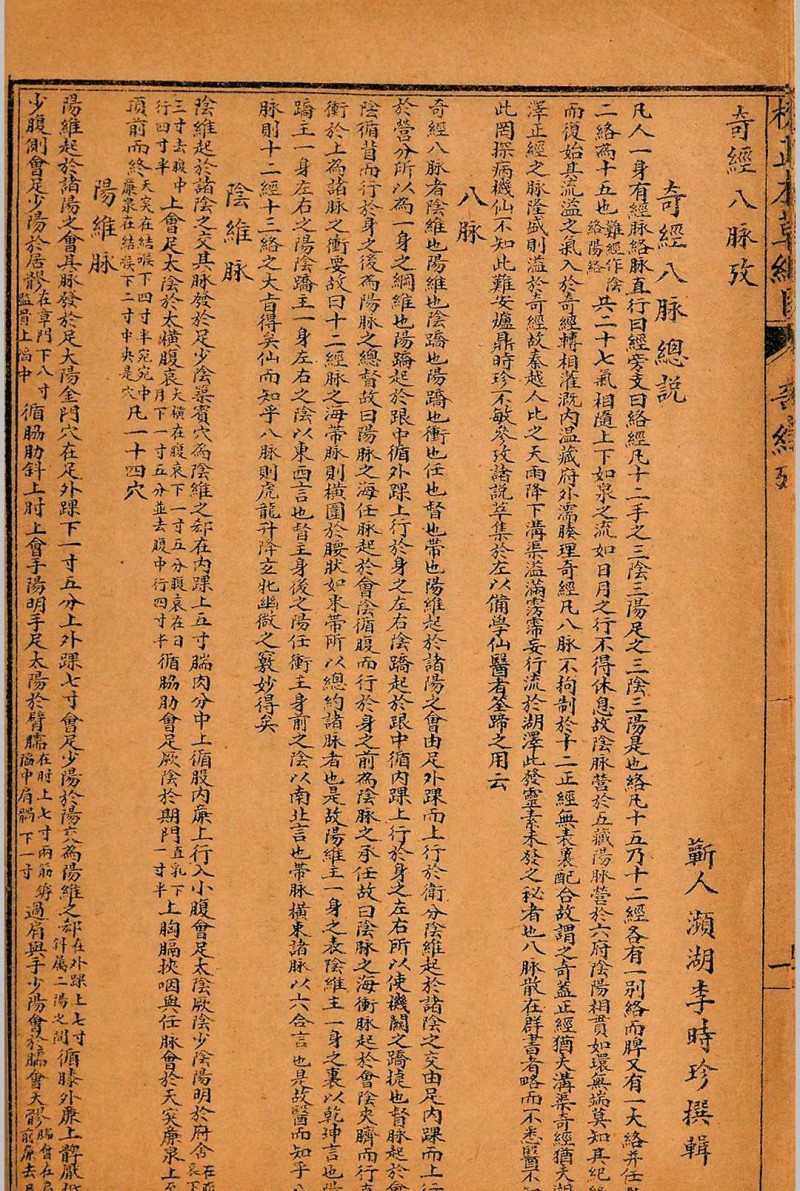 校正本草綱目 奇經攷 一
奇經八脈攷
蘄人瀕湖李時珍撰輯
奇經八脈總說
凡人一身有經脈絡脈直行曰經旁支曰絡經凡十二手之三陰三陽足之三陰三陽是也絡凡十五乃十二經各有一別絡而脾又有一大絡并任
二絡為十五也難經作陰絡陽絡共二十七氣相隨上下如泉之流如日月之行不得休息故陰脈營於五藏陽脈營於六府陰陽相貫如環無端莫知其紀終
而復始其流溢之氣入於奇經轉相灌溉內溫藏府外濡腠理奇經凡八脈不拘制於十二正經無表裏配合故謂之奇蓋正經猶夫溝渠奇經猶夫湖
澤正經之脈隆盛則溢於奇經故秦越人比之天雨降下溝渠溢滿雱霈妄行流於湖澤此發靈素未發之秘者也八脈散在群書者略而不悉醫不知
此罔探病機仙不知此難安爐鼎時珍不敏參攷諸說萃集於左以備學仙醫者筌蹄之用云
八脈
奇經八脈者陰維也陽維也陰蹻也陽蹻也衝也任也督也帶也陽維起於諸陽之會由足外踝而上行於衛分陰維起於諸陰之交由足內踝而上行
於營分所以為一身之綱維也陽蹻起於跟中循外踝上行於身之左右陰蹻起於跟中循內踝上行於身之左右所以使機關之蹻捷也督脈起於會
陰循背而行於身之後為陽脈之總督故曰陽脈之海任脈起於會陰循腹而行於身之前為陰脈之承任故曰陰脈之海衝脈起於會陰夾臍而行直
衝於上為諸脈之衝要故曰十二經脈之海帶脈則橫圍於腰狀如束帶所以總約諸脈者也是故陽維主一身之表陰維主一身之裏以乾坤言也陽
蹻主一身左右之陽陰蹻主一身左右之陰以東西言也督主身後之陽任衝主身前之陰以南北言也帶脈橫束諸脈以六合言也是故醫而知乎八
脈則十二經十三絡之大旨得矣仙而知乎八脈則虎龍升降玄牝幽微之竅妙得矣
陰維脈
陰維起於諸陰之交其脈發於足少陰築賓穴為陰維之郄在內踝上五寸腨肉分中上循股內廉上行入小腹會足太陰厥陰少陰陽明於府舍
三寸去腹中行四寸半上會足太陰於大橫腹哀大橫在腹哀下一寸五分腹哀在日月下一寸五分並去腹中行四寸半循脇肋會足厥陰於期門直乳下一寸半上胸膈挾咽與任脈會於天突廉泉上至
頂前而終天突在結喉下四寸半宛宛中廉泉在結喉下二寸中央是穴凡一十四穴
陽維脈
陽維起於諸陽之會其脈發於足太陽金門穴在足外踝下一寸五分上外踝七寸會足少陽於陽交為陽維之郄在外踝上七寸斜屬二陽之間循膝外廉上髀厭抵
少腹側會足少陽於居髎在章門下八寸監骨上陷中循脇肋斜上肘上會手陽明手足太陽於臂臑在肘上七寸兩筋罅陷中肩髃下一寸過肩與手少陽會於臑會天髎